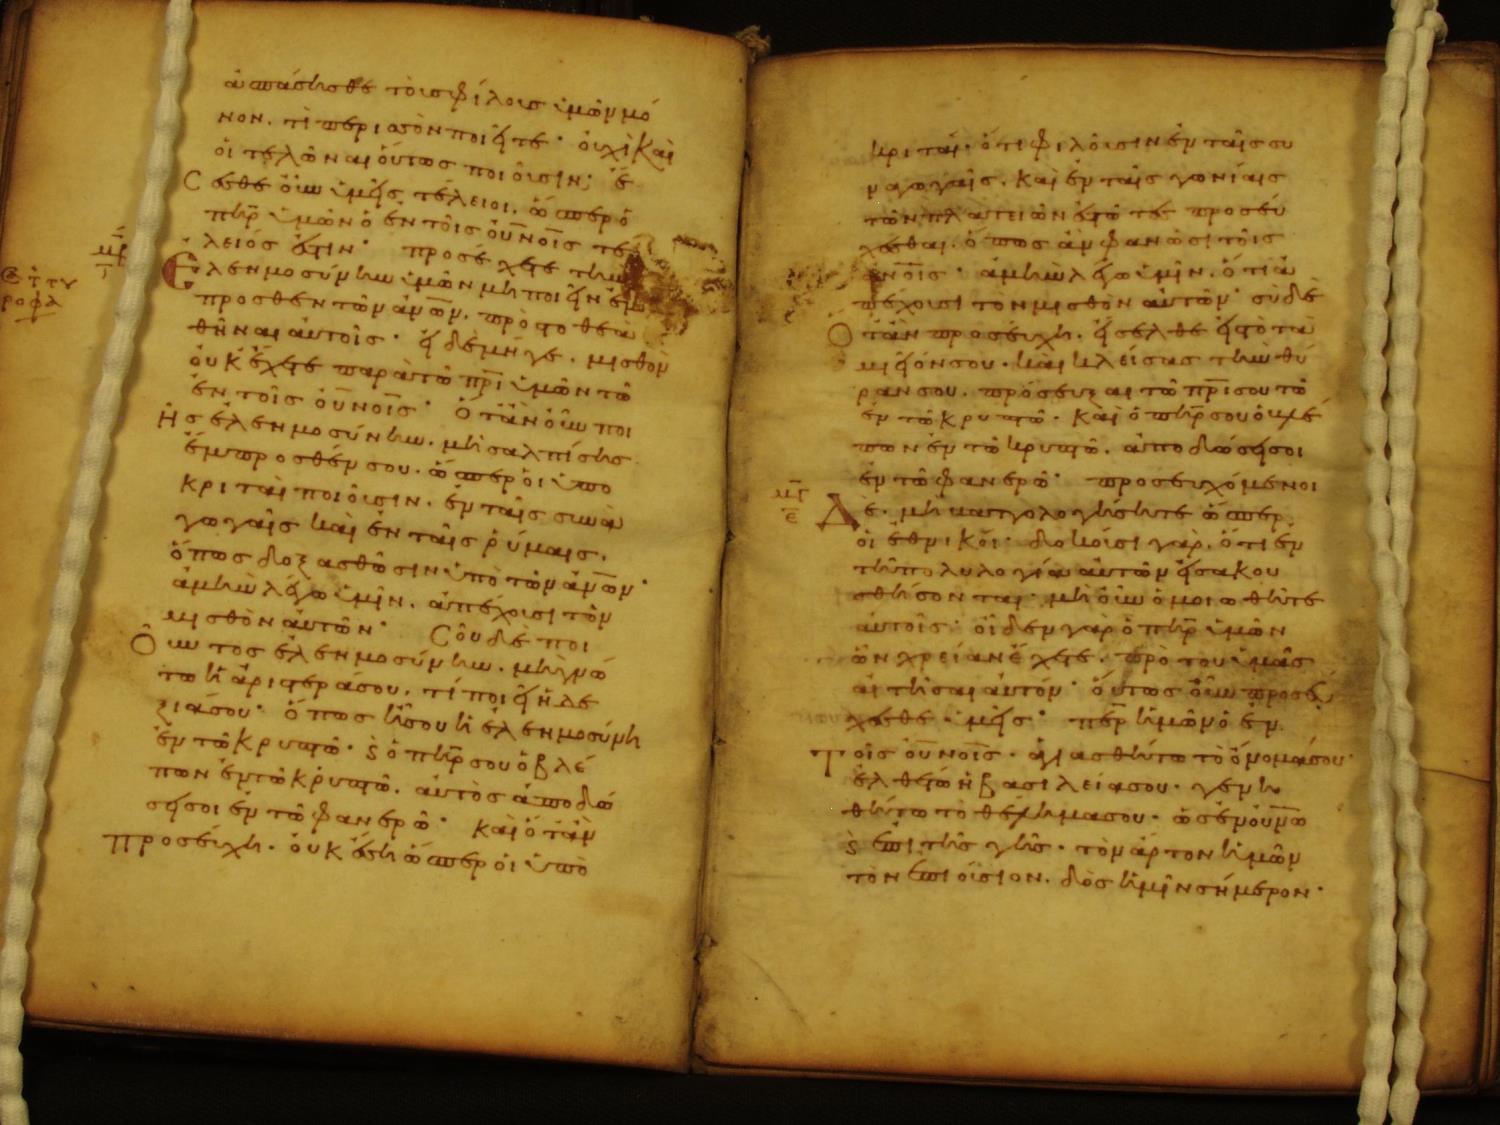 ἀσπάσησθε τοὺς φίλους ὑμῶν μό
νον. τί περισσὸν ποιεῖτε· οὐχὶ καὶ
οἱ τελῶναι οὕτως ποιοῦσιν; ἔ
σεσθε οὖν ὑμεῖς τέλειοι. ὥσπερ ὁ
πηρ ὑμῶν ὁ ἐν τοῖς οὐνοῖς τέ
λειός ἐστιν· προσέχετε τὴν
Ἐλεημοσύνην ὑμῶν μὴ ποιεῖν ἔμ
προσθεν τῶν ἀνων. πρὸς τὸ θεα
θῆναι αὐτοῖς· εἰ δὲ μήγε. μισθὸν
οὐκ ἔχετε παρὰ τῶ πρι ὑμῶν τῶ
ἐν τοῖς οὐνοῖς· Ὅταν οὖν ποι
ῆς ἐλεημοσύνην. μὴ σαλπίσης
ἔμπροσθέν σου. ὥσπερ οἱ ὑπο
κριταὶ ποιοῦσιν. ἐν ταῖς συνα
γωγαῖς καὶ ἐν ταῖς ῥύμαις.
ὅπως δοξασθῶσιν ὑπὸ τῶν ἀνων·
ἀμὴν λέγω ὑμῖν. ἀπέχουσι τὸν
μισθὸν αὐτῶν· Σοῦ δὲ ποι
οῦντος ἐλεημοσύνην. μὴ γνώ
τω ἡ ἀριστερά σου. τί ποιεῖ ἡ δε
ξιά σου· ὅπως ἦ σου ἡ ἐλεημοσύνη
ἐν τῶ κρυπτῶ· ϗ ὁ πηρ σου ὁ βλέ
πων ἐν τῶ κρυπτῶ. αὐτὸς ἀποδώ
σει σοι ἐν τῶ φανερῶ· καὶ ὅταν
προσεύχη. οὐκ ἔση ὥσπερ οἱ ὑπο
μβ
κριταί· ὅτι φιλοῦσιν ἐν ταῖς συ
ναγωγαῖς. καὶ ἐν ταῖς γωνίαις
τῶν πλατειῶν ἑστῶτες προσεύ
χεσθαι. ὅπως ἂν φανῶσι τοῖς
ἀνοῖς· ἀμὴν λέγω ὑμῖν. ὅτι ἀ
πέχουσι τὸν μισθὸν αὐτῶν· σὺ δὲ
ὅταν προσεύχη. εἴσελθε εἰς τὸ τα
μιεῖόν σου. καὶ κλείσας τὴν θύ
ραν σου. πρόσευξαι τῶ πρι σου τῶ
ἐν τῶ κρυπτῶ· καὶ ὁ πηρ σου ὁ βλέ
πων ἐν τῶ κρυπτῶ. ἀποδώσει σοι
ἐν τῶ φανερῶ· προσευχόμενοι
μγ
ε
Δὲ. μὴ βαττολογήσητε ὥσπερ
οἱ ἐθνικοί· δοκοῦσι γὰρ. ὅτι ἐν
τῆ πολυλογία αὐτῶν εἰσακου
σθήσονται· μὴ οὖν ὁμοιωθῆτε
αὐτοῖς· οἶδεν γὰρ ὁ πηρ ὑμῶν
ὧν χρείαν ἔχετε. πρὸ τοῦ ὑμᾶς
αἰτῆσαι αὐτόν· οὕτως οὖν προσεύ
χεσθε ὑμεῖς· περ ἡμῶν ὁ ἐν
Τοῖς οὐνοῖς· ἁγιασθήτω τὸ ὄνομά σου·
ἐλθέτω ἡ βασιλεία σου· γενη
θήτω τὸ θέλημά σου· ὡς ἐν οὐνω
ϗ ἐπὶ τῆς γῆς· τὸν ἄρτον ἡμῶν
τὸν ἐπιούσιον. δὸς ἡμῖν σήμερον·